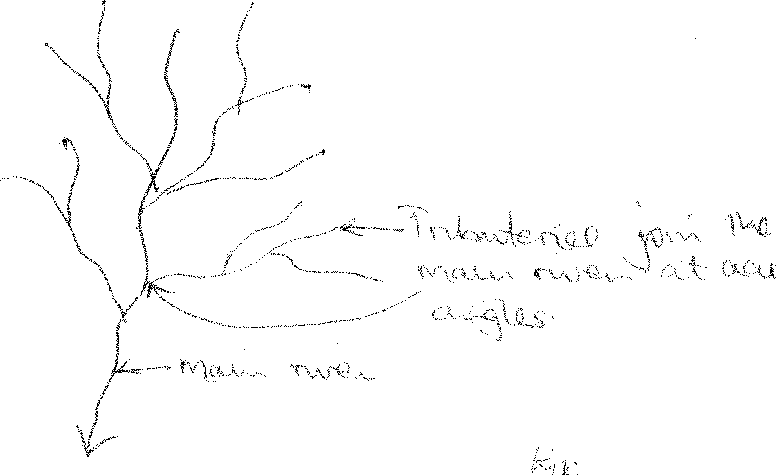 Tributaries join the
main river at acu
angles.
main river